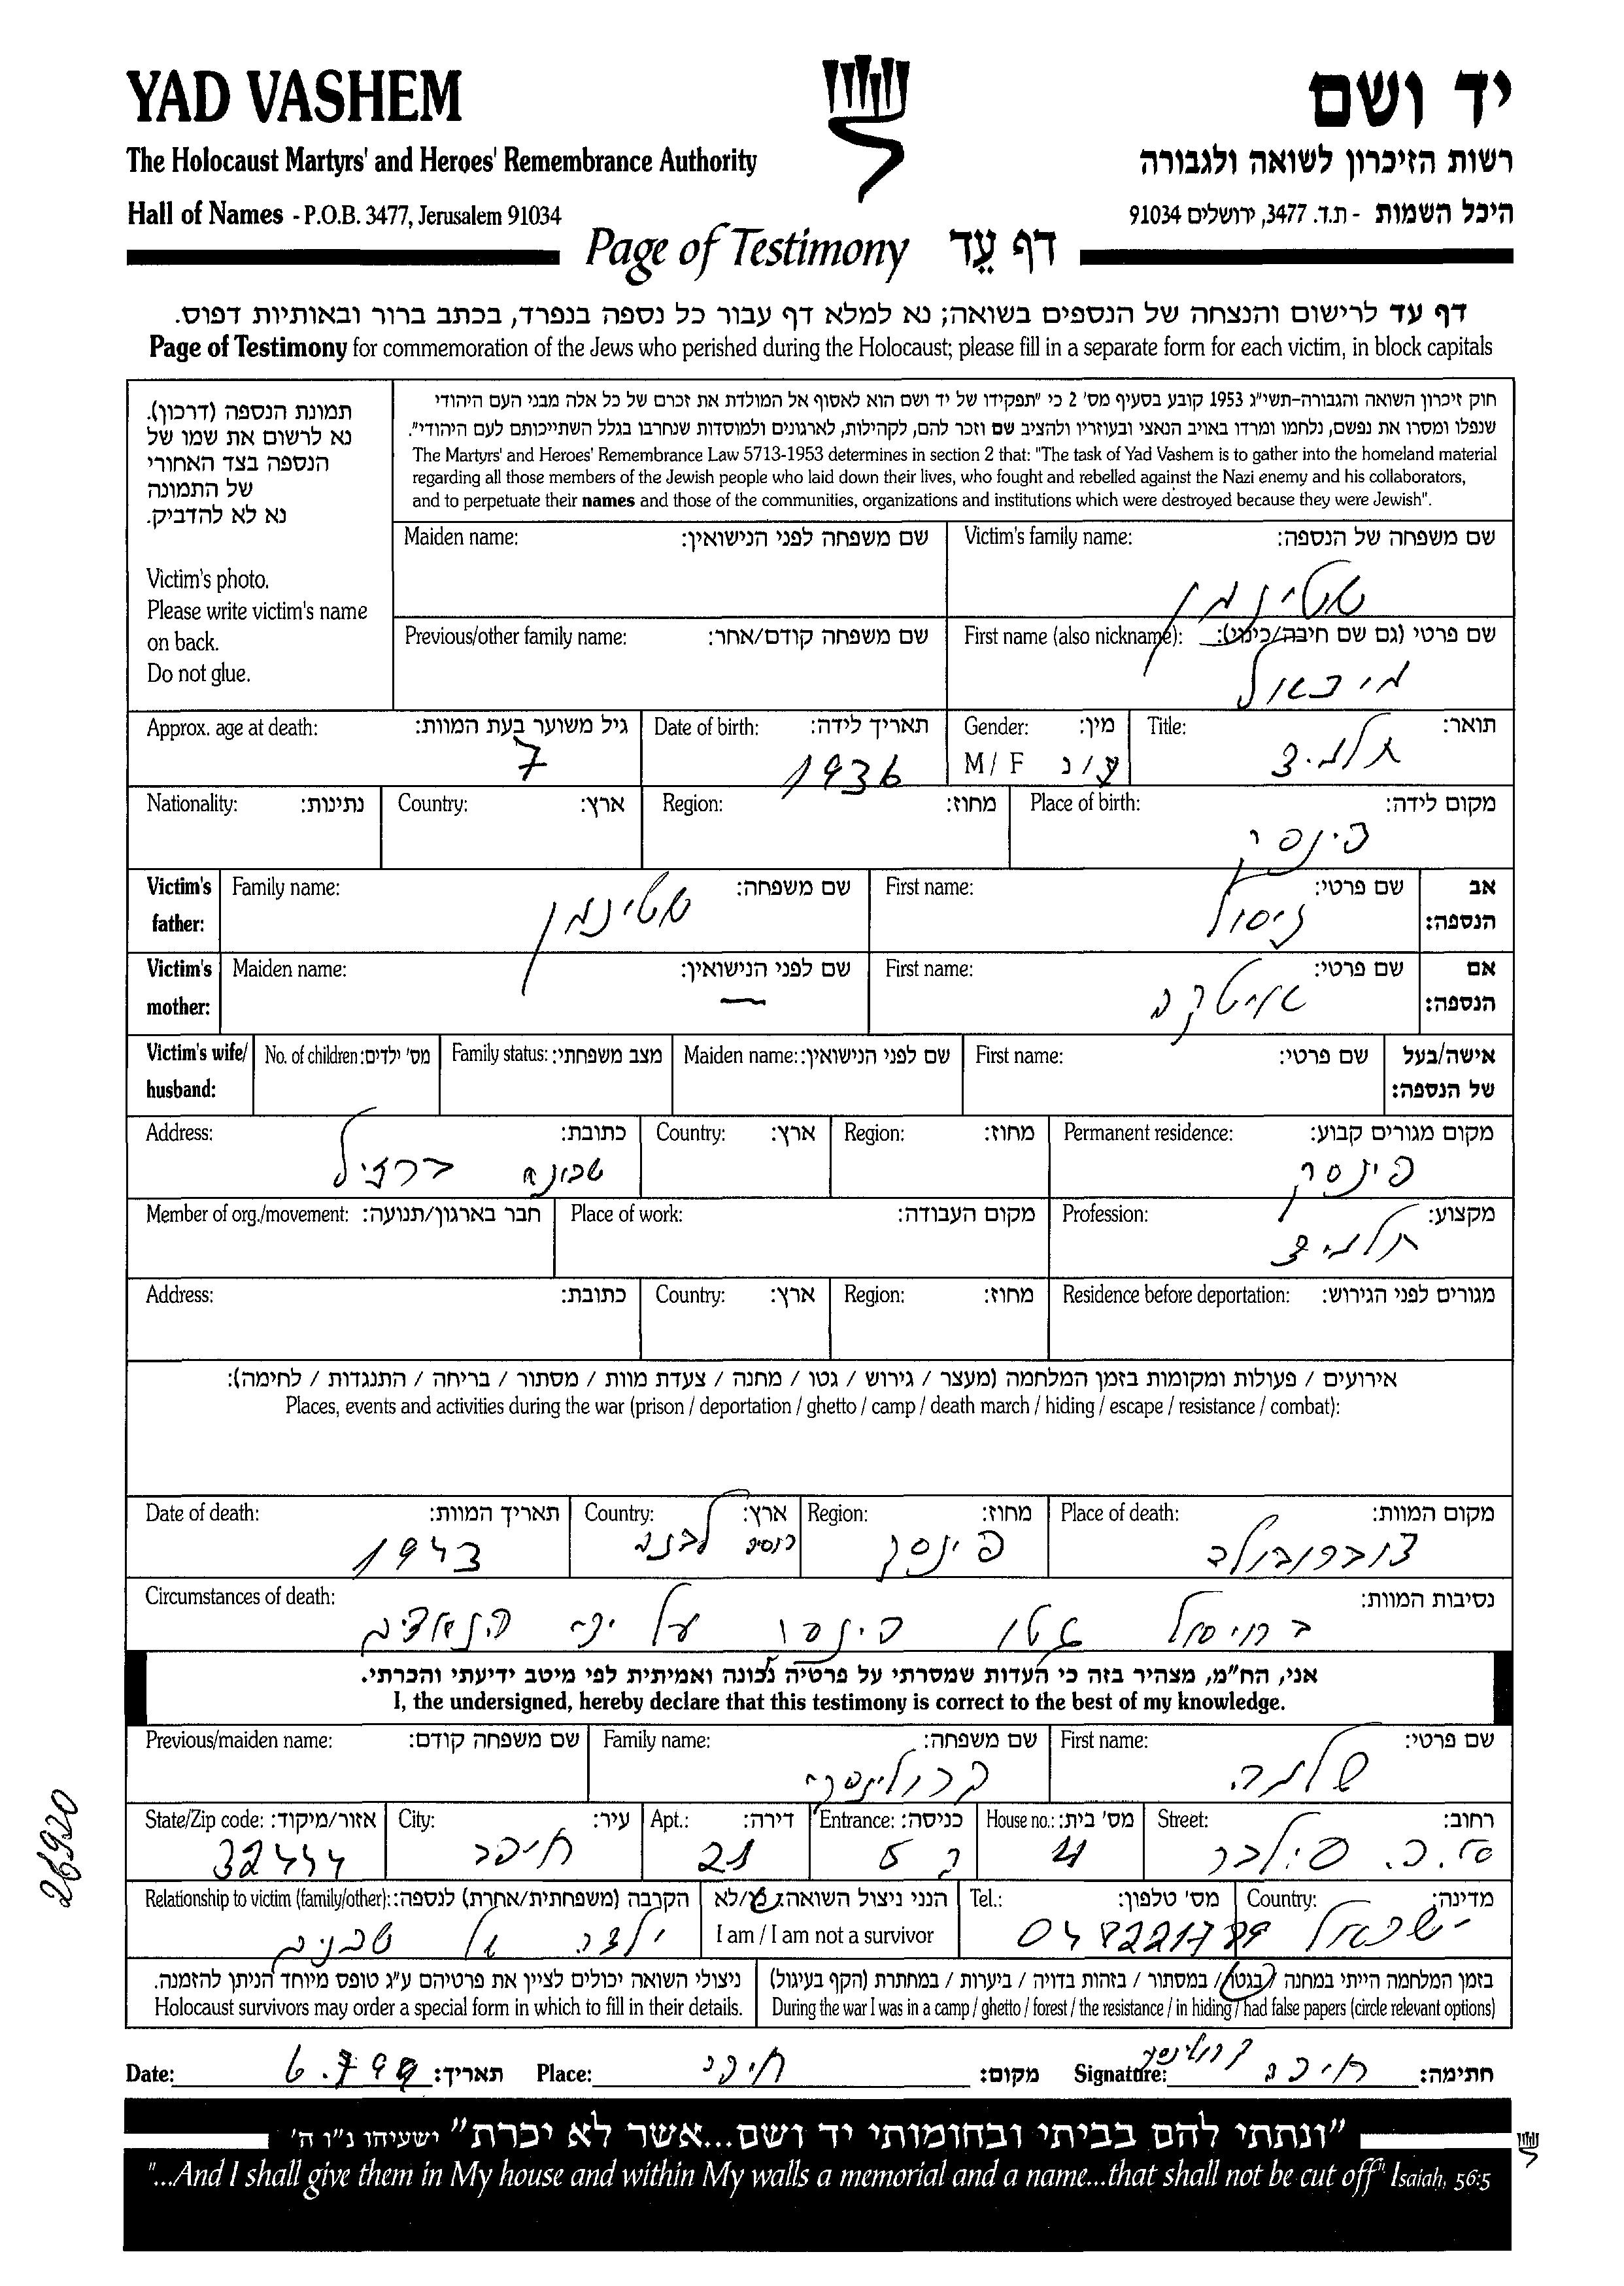 YAD VASHEM
יד ושם
The Holocaust Martyrs' and Heroes' Remembrance Authority
רשות הזיכרון לשואה ולגבורה
Hall of Names - P.O.B. 3477, Jerusalem 91034
היכל השמות - ת.ד. 3477, ירושלים 91034
Page of Testimony דף עֵד
דף עד לרישום והנצחה של הנספים בשואה; נא למלא דף עבור כל נספה בנפרד, בכתב ברור ובאותיות דפוס.
Page of Testimony for commemoration of the Jews who perished during the Holocaust; please fill in a separate form for each victim, in block capitals
תמונת הנספה (דרכון).
נא לרשום את שמו של
הנספה בצד האחורי
של התמונה
נא לא להדביק.
Victim's photo.
Please write victim's name
on back.
Do not glue.
חוק זיכרון השואה והגבורה-תשי"ג 1953 קובע בסעיף מס' 2 כי "תפקידו של יד ושם הוא לאסוף אל המולדת את זכרם של כל אלה מבני העם היהודי
שנפלו ומסרו את נפשם, נלחמו ומרדו באויב הנאצי ובעוזריו ולהציב שם וזכר להם, לקהילות, לארגונים ולמוסדות שנחרבו בגלל השתייכותם לעם היהודי".
The Martyrs' and Heroes' Remembrance Law 5713-1953 determines in section 2 that: "The task of Yad Vashem is to gather into the homeland material
regarding all those members of the Jewish people who laid down their lives, who fought and rebelled against the Nazi enemy and his collaborators,
and to perpetuate their names and those of the communities, organizations and institutions which were destroyed because they were Jewish".
Victim's family name: שם משפחה של הנספה:
שטינמן
Maiden name: שם משפחה לפני הנישואין:
First name (also nickname): שם פרטי (גם שם חיבה/כינוי):
מיכאל
Previous/other family name: שם משפחה קודם/אחר:
Title: תואר:
תלמיד
Gender: מין:
M / F ז / נ
Date of birth: תאריך לידה:
1936
Approx. age at death: גיל משוער בעת המוות:
7
Place of birth: מקום לידה:
פינסק
Region: מחוז:
Country: ארץ:
Nationality: נתינות:
Victim's father: אב הנספה:
First name: שם פרטי:
ניסול
Family name: שם משפחה:
שטינמן
Victim's mother: אם הנספה:
First name: שם פרטי:
איטקה
Maiden name: שם לפני הנישואין:
—
Victim's wife/ husband: אישה/בעל של הנספה:
First name: שם פרטי:
Maiden name: שם לפני הנישואין:
Family status: מצב משפחתי:
No. of children: מס' ילדים:
Permanent residence: מקום מגורים קבוע:
פינסק
Region: מחוז:
Country: ארץ:
Address: כתובת:
שכונת ברזיל
Profession: מקצוע:
תלמיד
Place of work: מקום העבודה:
Member of org./movement: חבר בארגון/תנועה:
Residence before deportation: מגורים לפני הגירוש:
Region: מחוז:
Country: ארץ:
Address: כתובת:
אירועים / פעולות ומקומות בזמן המלחמה (מעצר / גירוש / גטו / מחנה / צעדת מוות / מסתור / בריחה / התנגדות / לחימה):
Places, events and activities during the war (prison / deportation / ghetto / camp / death march / hiding / escape / resistance / combat):
Place of death: מקום המוות:
דוברובולה
Region: מחוז:
פינסק
Country: ארץ:
רוסיה לבנה
Date of death: תאריך המוות:
1943
Circumstances of death: נסיבות המוות:
בחיסול גטו פינסק על ידי הנאצים
אני, הח"מ, מצהיר בזה כי העדות שמסרתי על פרטיה נכונה ואמיתית לפי מיטב ידיעתי והכרתי.
I, the undersigned, hereby declare that this testimony is correct to the best of my knowledge.
First name: שם פרטי:
שלמה
Family name: שם משפחה:
קרולינסקי
Previous/maiden name: שם משפחה קודם:
Street: רחוב:
סילבר
House no.: מס' בית:
Entrance: כניסה:
Apt.: דירה:
21
City: עיר:
חיפה
State/Zip code: אזור/מיקוד:
32444
Country: מדינה:
ישראל
Tel.: מס' טלפון:
הנני ניצול השואה: כן/לא
I am / I am not a survivor
Relationship to victim (family/other): הקרבה (משפחתית/אחרת) לנספה:
ילד של שכנים
בזמן המלחמה הייתי במחנה / בגטו / במסתור / בזהות בדויה / ביערות / במחתרת (הקף בעיגול)
During the war I was in a camp / ghetto / forest / the resistance / in hiding / had false papers (circle relevant options)
ניצולי השואה יכולים לציין את פרטיהם ע"ג טופס מיוחד הניתן להזמנה.
Holocaust survivors may order a special form in which to fill in their details.
Date: 6.7.99 תאריך:
Place: חיפה מקום:
Signature: חתימה:
26920
"ונתתי להם בביתי ובחומותי יד ושם...אשר לא יכרת" ישעיהו נ"ו ה'
"...And I shall give them in My house and within My walls a memorial and a name...that shall not be cut off" Isaiah, 56:5